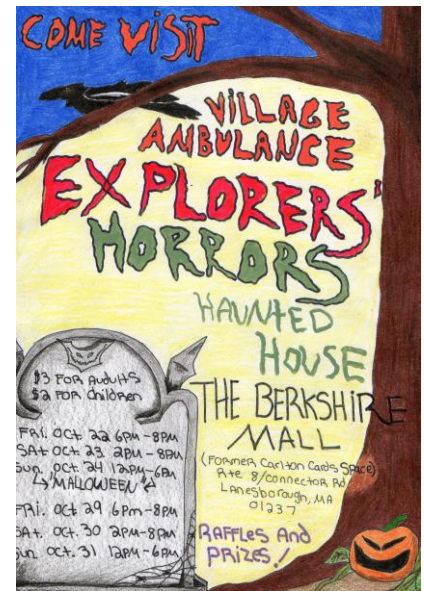 COME VISIT
VILLAGE
AMBULANCE
EXPLORERS'
HORRORS
HAUNTED
HOUSE
THE BERKSHIRE
MALL
(FORMER Carlton Cards Space)
Rte 8/connector Rd
Lanesborough, MA
01237
RAFFLES AND
PRIZES!
$3 FOR AUDULTS
$2 FOR Children
FRI. Oct. 22 6PM-8PM
SAt Oct. 23 2PM-8PM
Sun. Oct. 24 12PM-6PM
"MALLOWEEN"
FRi. Oct 29 6Pm-8PM
SAt. Oct. 30 2PM-8PM
Sun. Oct. 31 12PM-6PM